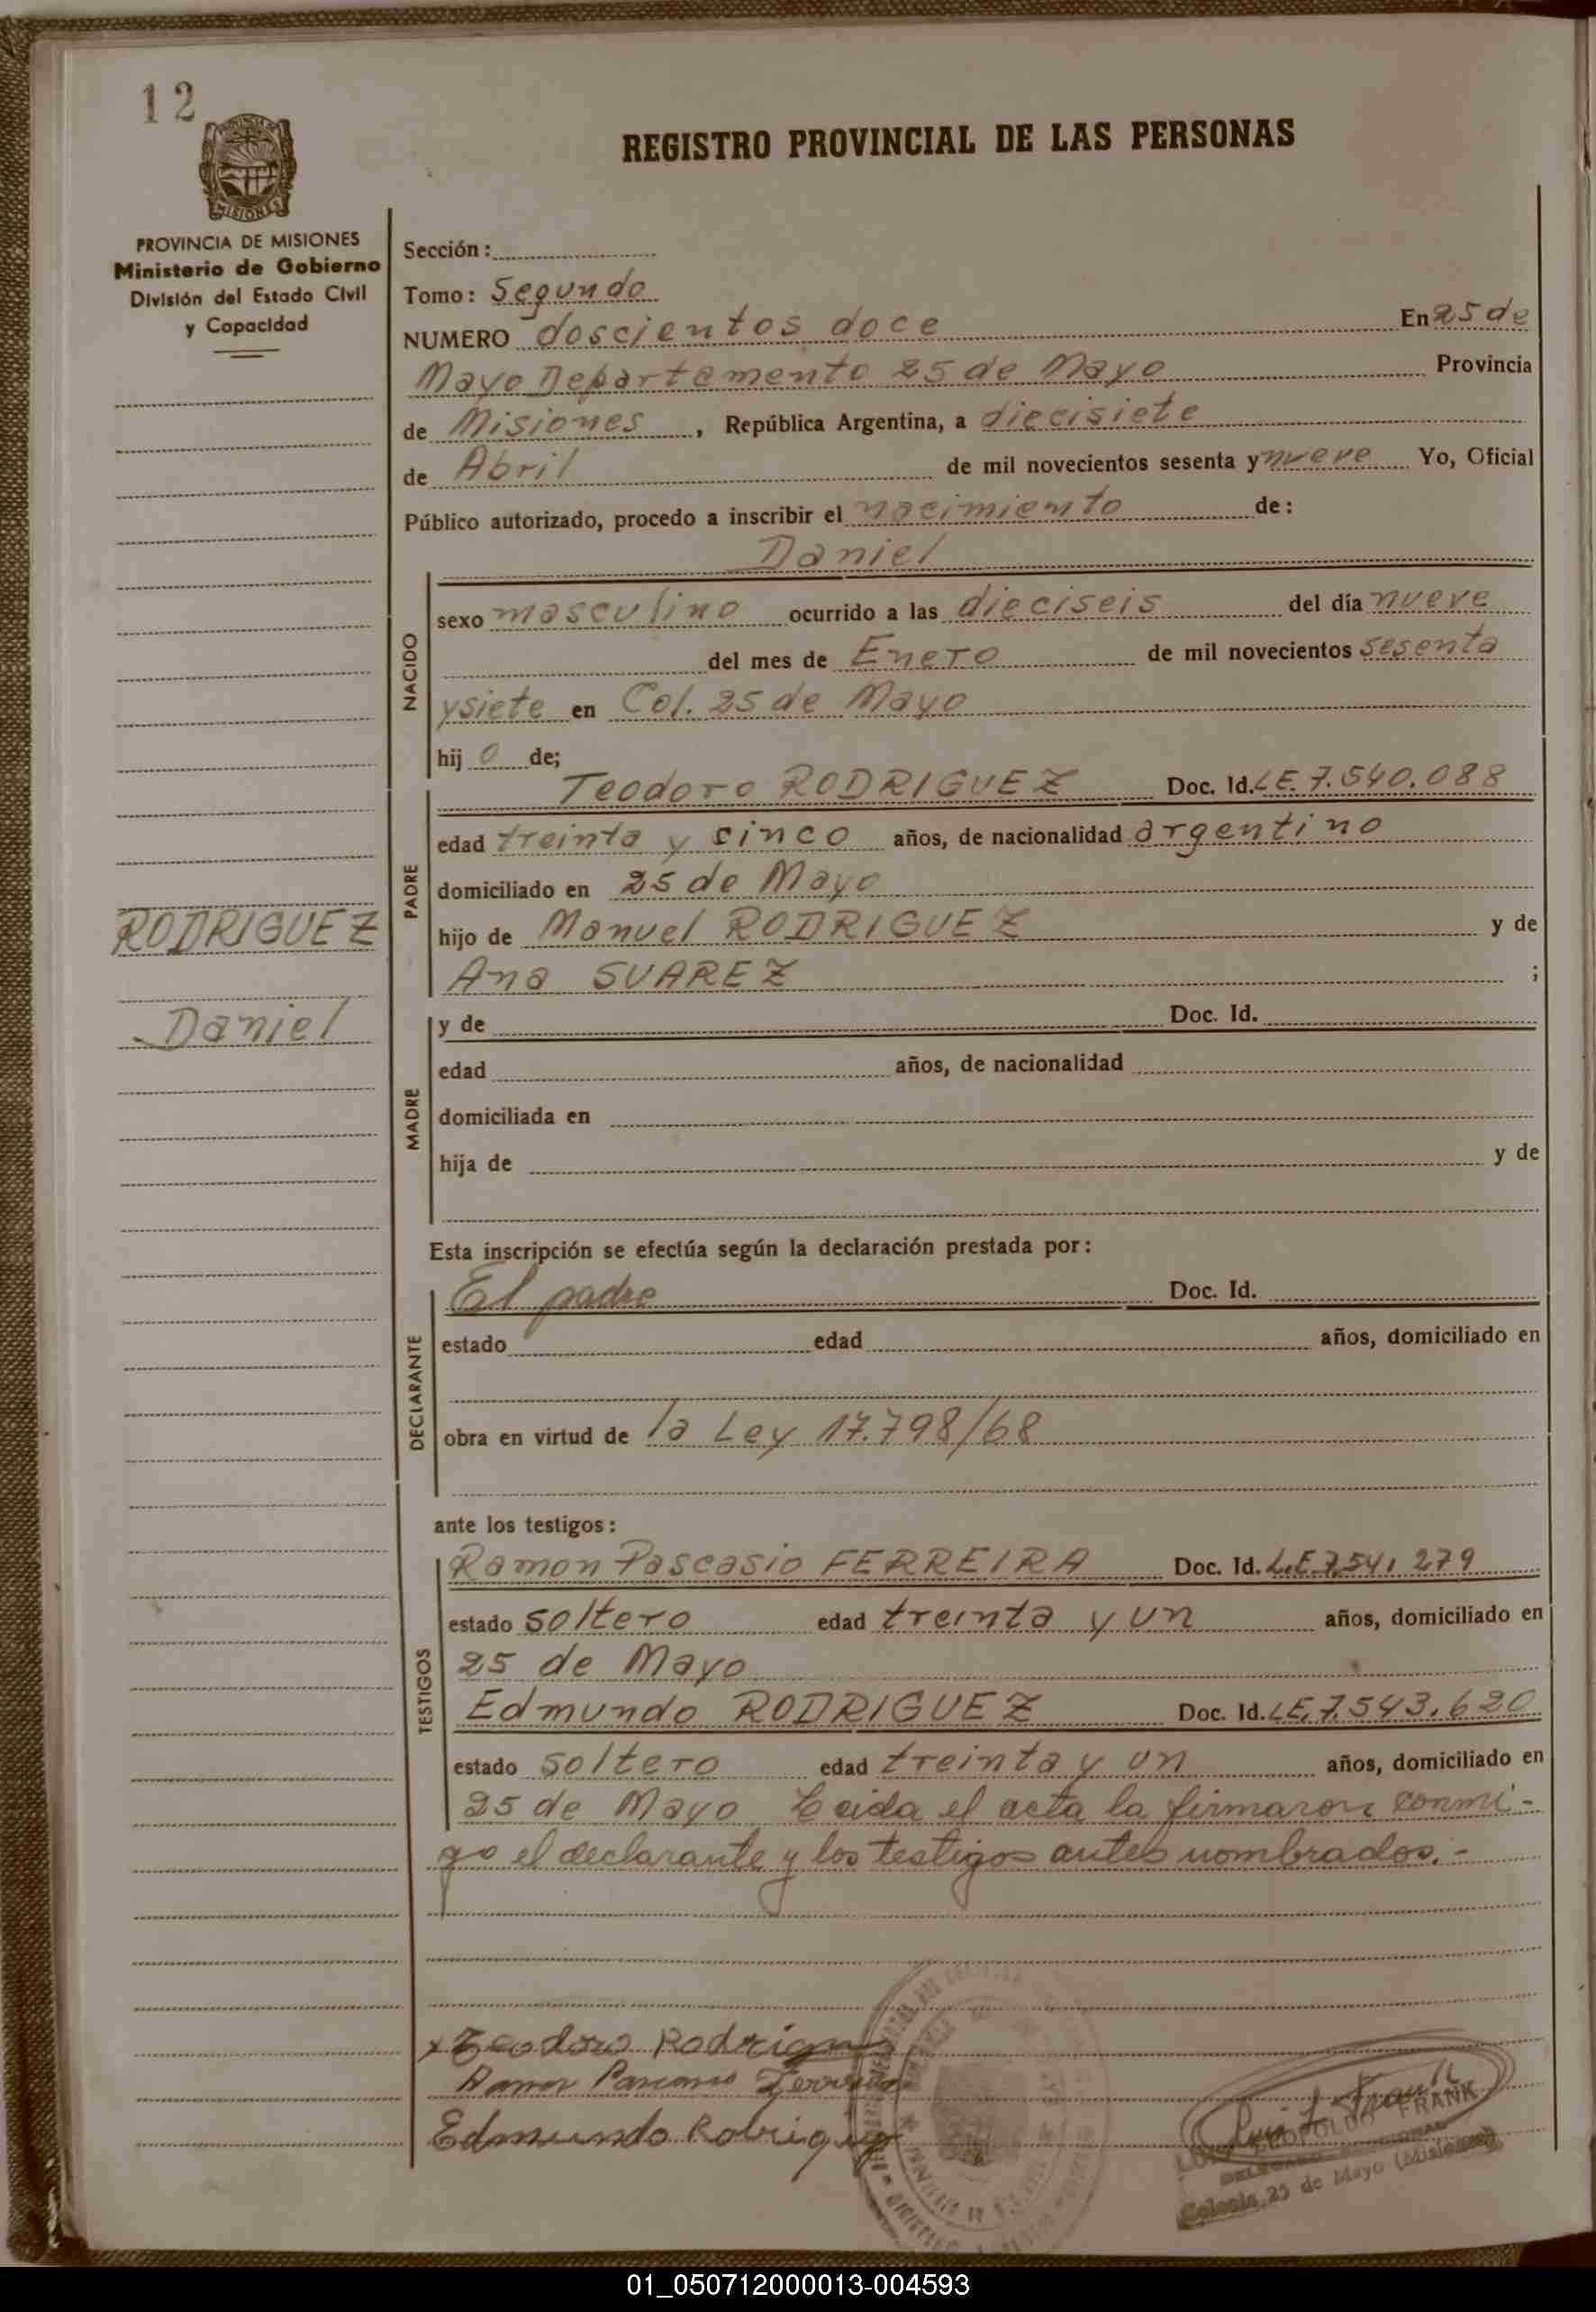 12
PROVINCIA DE MISIONES
Ministerio de Gobierno
División del Estado Civil
y Capacidad
REGISTRO PROVINCIAL DE LAS PERSONAS
Sección:
Tomo: Segundo
NUMERO doscientos doce En 25 de
Mayo Departamento 25 de Mayo Provincia
de Misiones, República Argentina, a diecisiete
de Abril de mil novecientos sesenta y nueve Yo, Oficial
Público autorizado, procedo a inscribir el nacimiento de:
Daniel
NACIDO
sexo masculino ocurrido a las dieciseis del día nueve
del mes de Enero de mil novecientos sesenta
y siete en Col. 25 de Mayo
hij o de;
PADRE
Teodoro RODRIGUEZ Doc. Id. LE. 7.540.088
edad treinta y cinco años, de nacionalidad argentino
domiciliado en 25 de Mayo
hijo de Manuel RODRIGUEZ y de
Ana SUAREZ ;
RODRIGUEZ
Daniel
MADRE
y de Doc. Id.
edad años, de nacionalidad
domiciliada en
hija de y de
Esta inscripción se efectúa según la declaración prestada por:
DECLARANTE
El padre Doc. Id.
estado edad años, domiciliado en
obra en virtud de la Ley 17.798/68
ante los testigos:
TESTIGOS
Ramon Pascasio FERREIRA Doc. Id. L.E. 7.541.279
estado soltero edad treinta y un años, domiciliado en
25 de Mayo
Edmundo RODRIGUEZ Doc. Id. LE. 7.543.620
estado soltero edad treinta y un años, domiciliado en
25 de Mayo Leida el acta la firmaron conmi-
go el declarante y los testigos antes nombrados.-
x Teodoro Rodrigu
Ramon Pascasio Ferreira
Edmundo Rodriguez
Luis L Frank
LUIS LEOPOLDO FRANK
Colonia 25 de Mayo (Misiones)
01_050712000013-004593